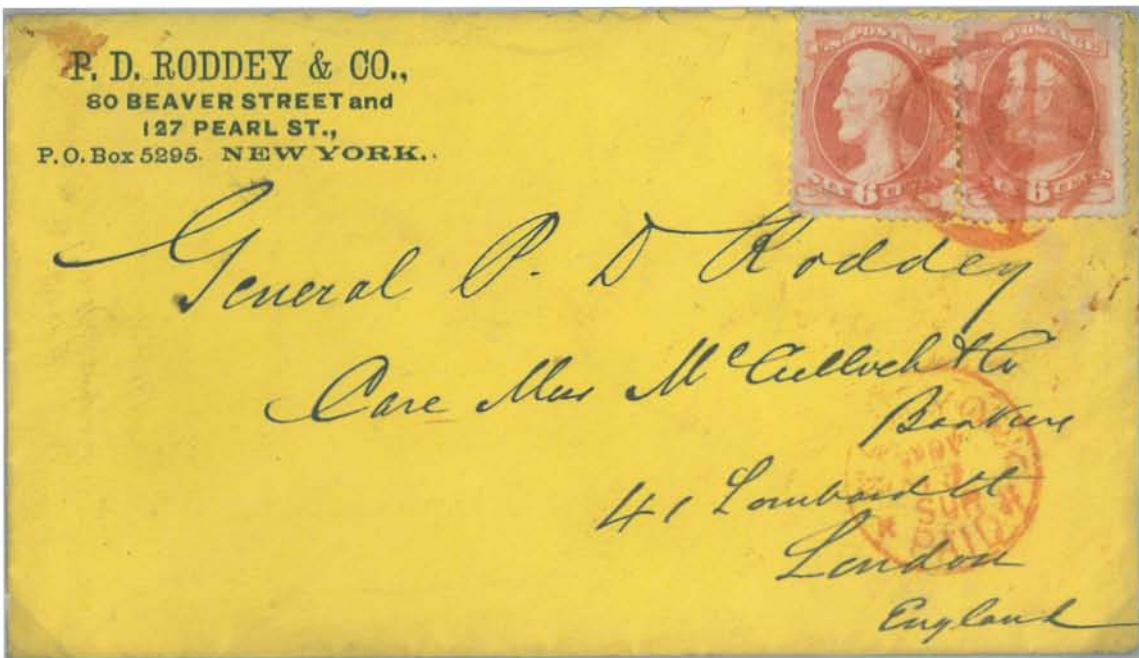 P. D. RODDEY & CO.,
80 BEAVER STREET and
127 PEARL ST.,
P. O. Box 5295. NEW YORK.
U.S. POSTAGE
POSTAGE
SIX 6 CENTS
SIX 6 CENTS
General P. D Roddey
Care Mess McCulloch & Co
Bankers
41 Lombard St
London
England
NEW YORK
NOV
PAID